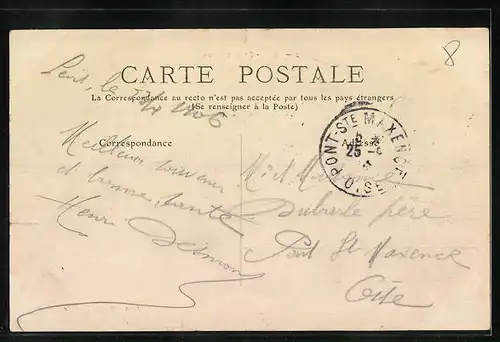 8
CARTE POSTALE
La Correspondance au recto n'est pas acceptée par tous les pays étrangers
(Se renseigner à la Poste)
le 1906
Correspondance
Adresse
PONT-STE MAXENCE
25
OISE
Meilleur souvenir
et bonne santé
Henri
M. et Madame
père
Pont Ste Maxence
Oise